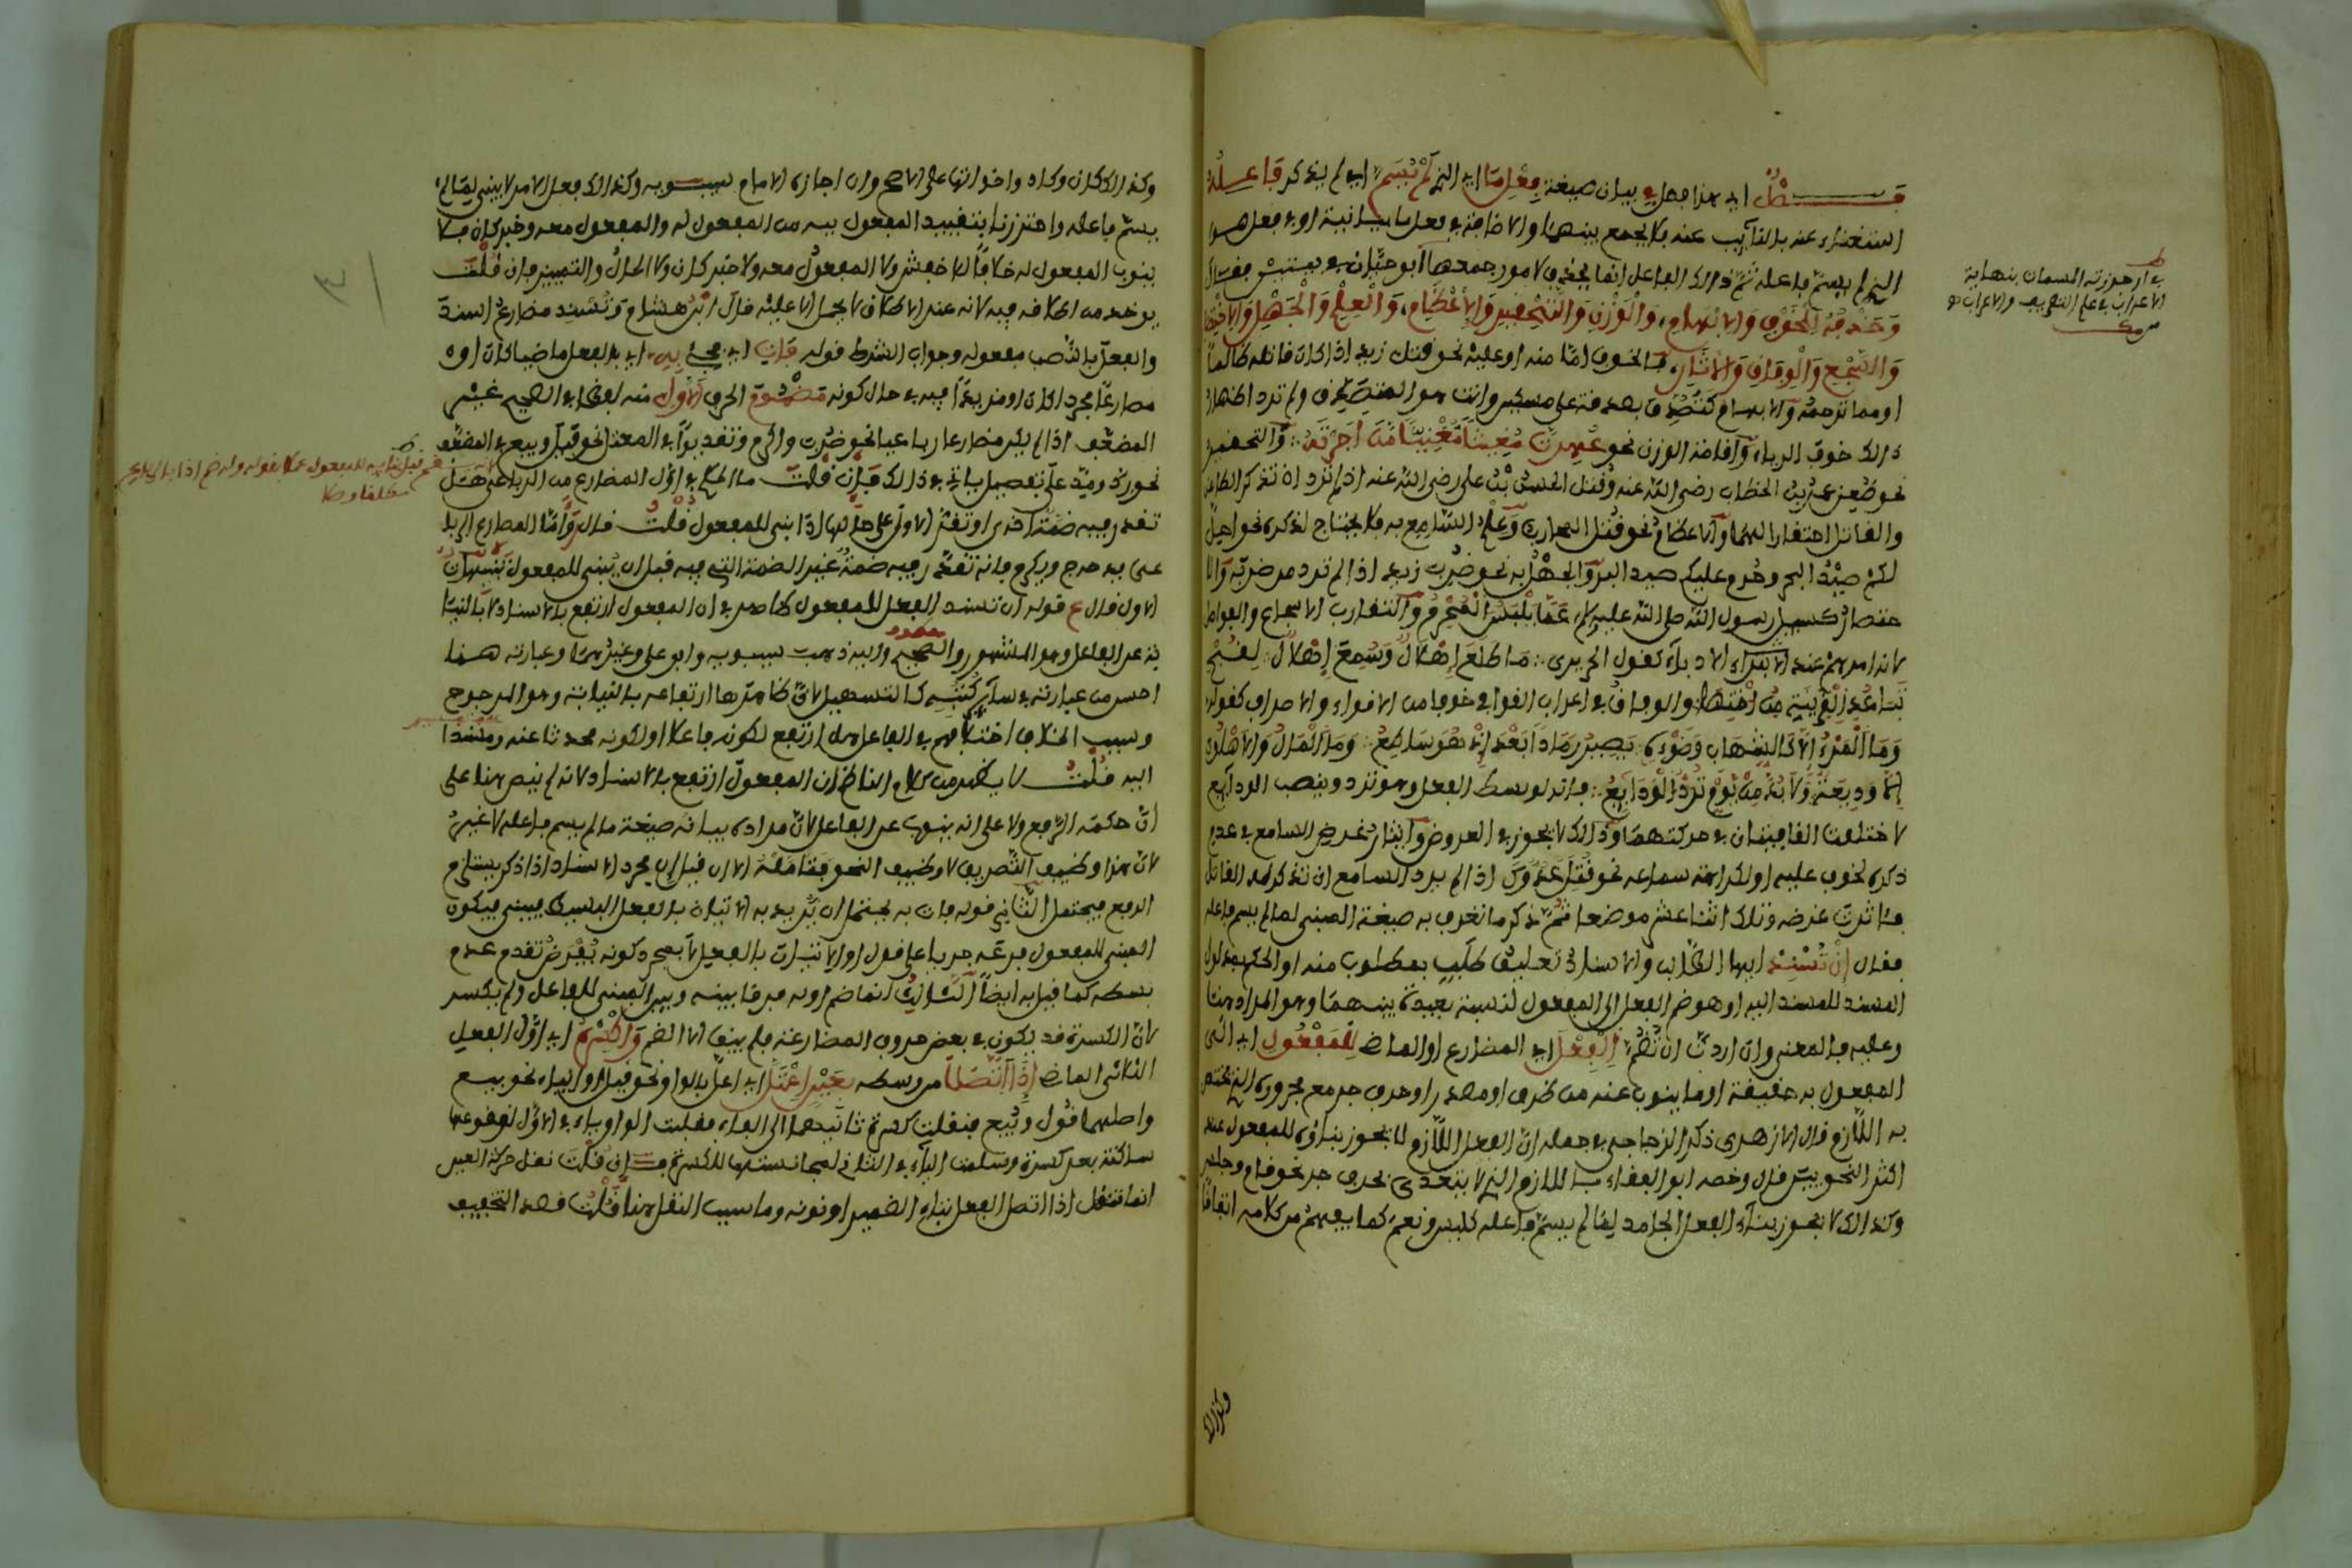 فصل اي هذا فصل في بيان صيغة فعل ما اي الذي لم يسم اي لم يذكر فاعله
استغناء عنه بالنآيب عنه فلا يجمع بينهما والاضافة في فعل ما بيانية او في فعل هو
الذي لم يسم فاعله ثم ذالك الفاعل انما يحذف لامور جمعها ابو حيان في بيتين فقال
وَحَذْفُهُ لِلْخَوْفِ وَالابْهَامِ، وَالْوَزْنِ وَالتَّحْفِيرِ وَالاعْظَامِ، وَالْعِلْمِ وَالْجَهْلِ وَالاخْتِصَارِ
وَالسَّجْعِ وَالْوِفَاقِ وَالايثَارِ، فالخوف امّا منه او عليه نحو قتل زيد اذا كان قاتله ظالماً
او مما ترحمه والابهام كتُصُدِّق بصدقة على مسكين وانت هو المتصدق ولم ترد اظهار
ذالك خوف الرياء وآقامة الوزن نحو والتحفير
نحو طُعِن عمر بن الخطاب رضي الله عنه وقُتل الحسن بن علي رضي الله عنه اذ لم ترد ان تذكر الطاعن
والقاتل احتقارا لهما والاعظام نحو قُتل وعلم السّامع به فلا يحتاج لذكره نحو احل
لكم صيد البحر وحرم عليكم صيد البر والجهل به نحو ضُرب زيد اذا لم تدر من ضربه والا
ختصار كسيل رسول الله صلى الله عليه وسلم عما يلبس المحرم والتقارب الاسجاع والفواصل
لانه امر مهم عند الادباء كقول الحريري مَا طَلَعَ إِهْلَالٌ وَسُمِعَ إِهْلَالٌ لِقُبْحِ
تباعد القرينة من اختها والوفاق في اعراب القوافي خوفا من الاقواء والاصراف كقوله
وَمَا الْمَرْءُ إِلَّا كَالشِّهَابِ وَضَوْئِهِ يَصِيرُ رَمَاداً بَعْدَ إِذْ هُوَ سَاطِعُ وَمَا الْمَالُ وَالأَهْلُونَ
إِلَّا وَدِيعَةٌ وَلَا بُدَّ مِنْ يَوْمٍ تُرَدُّ الْوَدَايِعُ فانه لو بسط الفعل وهو ترد وينصب الودآيع
لاختلفت القافيتان في حركتهما وذالك لا يجوز في العروض وآيثار غرض السامع في عدم
ذكره لخوف عليه او لكراهة سماعه نحو قُتِل عدوّك اذا لم يرد السامع ان تذكر له القاتل
فآثرت غرضه وتلك اثنا عشر موضعا ثمّ ذكر ما تعرف به صيغة المبني لما لم يسم فاعله
فقال إِنْ تُسْنِدْ ايها الطّالب والاسناد تعليق طلب بمطلوب منه او الحكم بمدلول
المسند للمسند اليه او هو ضم الفعل الى المفعول لنسبة مفيدة بينهما وهو المراد هنا
وعليه فالمعنى وان اردت ان تضم الْفِعْلَ اي المضارع او الماضي لِلْمَفْعُولِ اي الى
المفعول به حقيقة او ما ينوب عنه من ظرف او مصدر او حرف جر مع مجروره الذي يختص
به اللازم قال الازهري ذكر الزجاجي في جمله ان الفعل اللازم لا يجوز بناؤه للمفعول عند
اكثر النحويين قال وخصه ابو البقاء باللازم الذي لا يتعدى بحرف جر نحو قام وجلس
وكذالك لا يجوز بناء الفعل الجامد لما لم يسمّ فاعله كليس ونعم كما يفهم من كلامه اتفاقا
وكذالك
في ارجوزته المسمات بنهاية
الاعراب في علم التصريف والاعراب
وكذالك كان وكاد واخواتها على الاصح وان اجازه الامام سيبويه وكذالك فعل الامر لا يبنى لما لم
يسمّ فاعله واحترزنا بتقييد المفعول به من المفعول له والمفعول معه وخبر كان فلا
ينوب المفعول له خلافاً للاخفش ولا المفعول معه ولا خبر كان ولا الحال والتمييز فان قُلْتَ
يوخذ من اطلاقه فيه لانه عند الاطلاق لا يحمل الا عليه قال ابن هشام وتُسْنِد مضارع اسند
والفعل بالنّصب مفعوله وجواب الشرط قوله فَاتِ اي جئ بِهِ اي بالفعل ماضيا كان او
مضارعاً مجردا كان او مزيداً فيه في حال كونه مَضْمُومَ الحرف الأَوَّلِ منه لفظا في الصحيح غير
المضعّف اذا لم يكن مضارعا رباعيا نحو ضُرب واكرم وتقديراً في المعتل نحو قيل وبيع والمضعف
نحو رد ومدّ على تفصيل ياتي في ذالك فَإِن قُلْتَ ما الحكم في اوّل المضارع من الرباعي هل
تقدر فيه ضمّة اخرى او تقرّ الاولى على حالها اذا بني للمفعول قُلْتُ قال وامّا المضارع الربا
عي يدحرج ويكرم فانه تقدّر فيه ضمةٌ غير الضمة التي فيه قبل ان يبنى للمفعول
الاول قال ع قوله ان تسند الفعل للمفعول ظاهر في ان المفعول ارتفع بالاسناد لا بالنيا
بة عن الفاعل وهو المشهور والصحيح واليه ذهب سيبويه وابو علي وغيرهما وعبارته هنا
احسن من عبارته في سآير كتبه كالتسهيل لان ظاهرها ارتفاعه بالنيابة وهو المرجوح
وسبب الخلاف اختلافهم في الفاعل هل ارتفع لكونه فاعلا او لكونه محدثا عنه ومسندا
اليه قُلْتُ لا يظهر من كلام الناظم ان المفعول ارتفع بالاسناد لانه لم ينص هنا على
انّ حكمه الرفع ولا على انه ينوب عن الفاعل لان مراده بيان صيغة ما لم يسم فاعله لا غير
لان هذا وظيف التّصريف لا وظيف النحو فتامّله الا ان قيل ان مجرد الاسناد اذا ذكر يستلزم
الرفع فيحتمل الثّاني قوله فات به يحتمل ان يريد به الاتيان بالفعل البسيط فيبنى فيكون
المبني للمفعول فرعه جريا على قول او الاتيان بالفعل لا بمجرد كونه يُفْرَض تقدم عدم
بسطه كما قيل به ايضاً الثالث انما ضم اوله فرقا بينه وبين المبني للفاعل ولم يكسر
لانّ الكسرة قد يكون في بعض حروف المضارعة فلم يبق الا الضم وَاكْسِرْهُ اي اوّل الفعل
الثلاثي الماضي إِذَا اتَّصَلَا من وسطه بِعَيْنٍ اعْتَلّ اي اعلّ بالواو نحو قيل او الياء نحو بيع
واصلهما قُوِل وبُيِع فنقلت كسرة ثانيهما الى الفاء فقلبت الواو ياء في الاوّل لوقوعها
ساكنة بعد كسرة وسلمت الياء في الثاني لمجانستها للكسرة فَإِن قُلْتَ نقل حركة العين
انما تنقل اذا اتصل الفعل بتاء الضمير او نونه وما سبب النقل هنا قُلْتُ قصد التخفيف
٣١